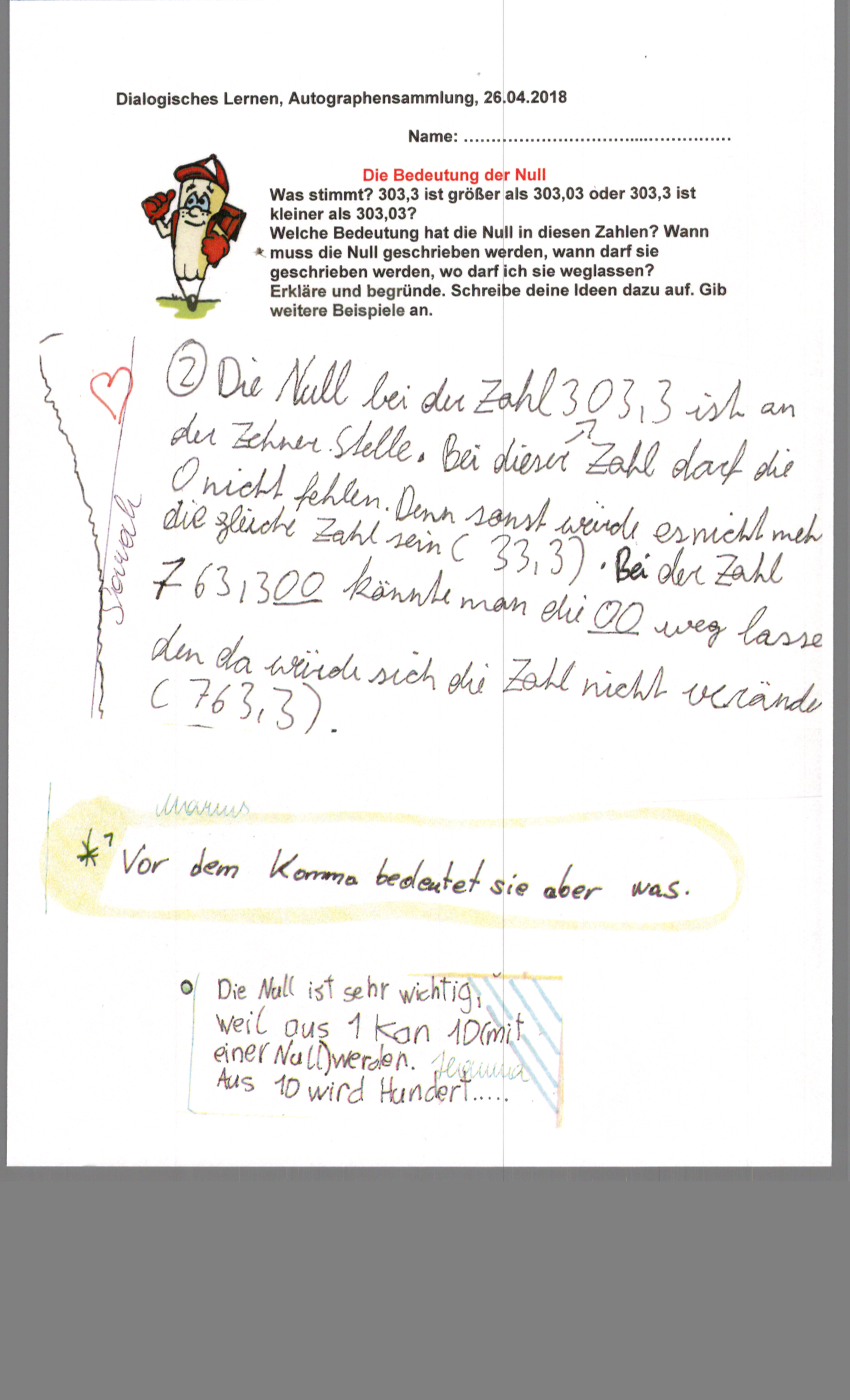 Dialogisches Lernen, Autographensammlung, 26.04.2018
Name: ................................................
Die Bedeutung der Null
Was stimmt? 303,3 ist größer als 303,03 oder 303,3 ist
kleiner als 303,03?
Welche Bedeutung hat die Null in diesen Zahlen? Wann
* muss die Null geschrieben werden, wann darf sie
geschrieben werden, wo darf ich sie weglassen?
Erkläre und begründe. Schreibe deine Ideen dazu auf. Gib
weitere Beispiele an.
② Die Null bei der Zahl 303,3 ist an
der Zehner Stelle. Bei dieser Zahl darf die
0 nicht fehlen. Denn sonst würde es nicht meh
die gleiche Zahl sein ( 33,3). Bei der Zahl
763,300 könnte man die 00 weg lasse
den da würde sich die Zahl nicht verände
( 763,3).
Marius
*1 Vor dem Komma bedeutet sie aber was.
Die Null ist sehr wichtig,
weil aus 1 kan 10(mit
einer Null)werden.
Aus 10 wird Hundert.....